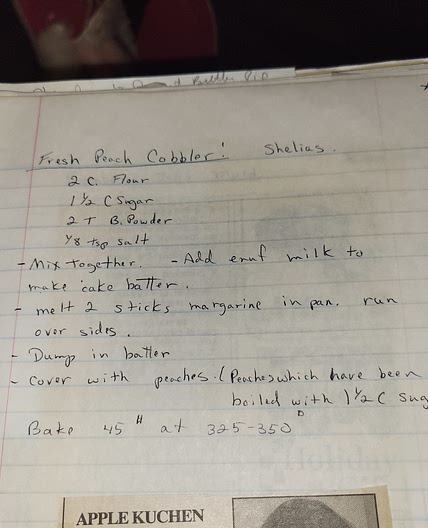 Butter Pie
Fresh Peach Cobbler! Shelias.
2 C. Flour
1 1/2 C Sugar
2 T B. Powder
1/8 tsp salt
- Mix together. - Add enuf milk to
make cake batter.
- melt 2 sticks margarine in pan. run
over sides.
- Dump in batter
- Cover with peaches. (Peaches which have been
boiled with 1 1/2 C sug
Bake 45 " at 325-350°
Holiday
APPLE KUCHEN